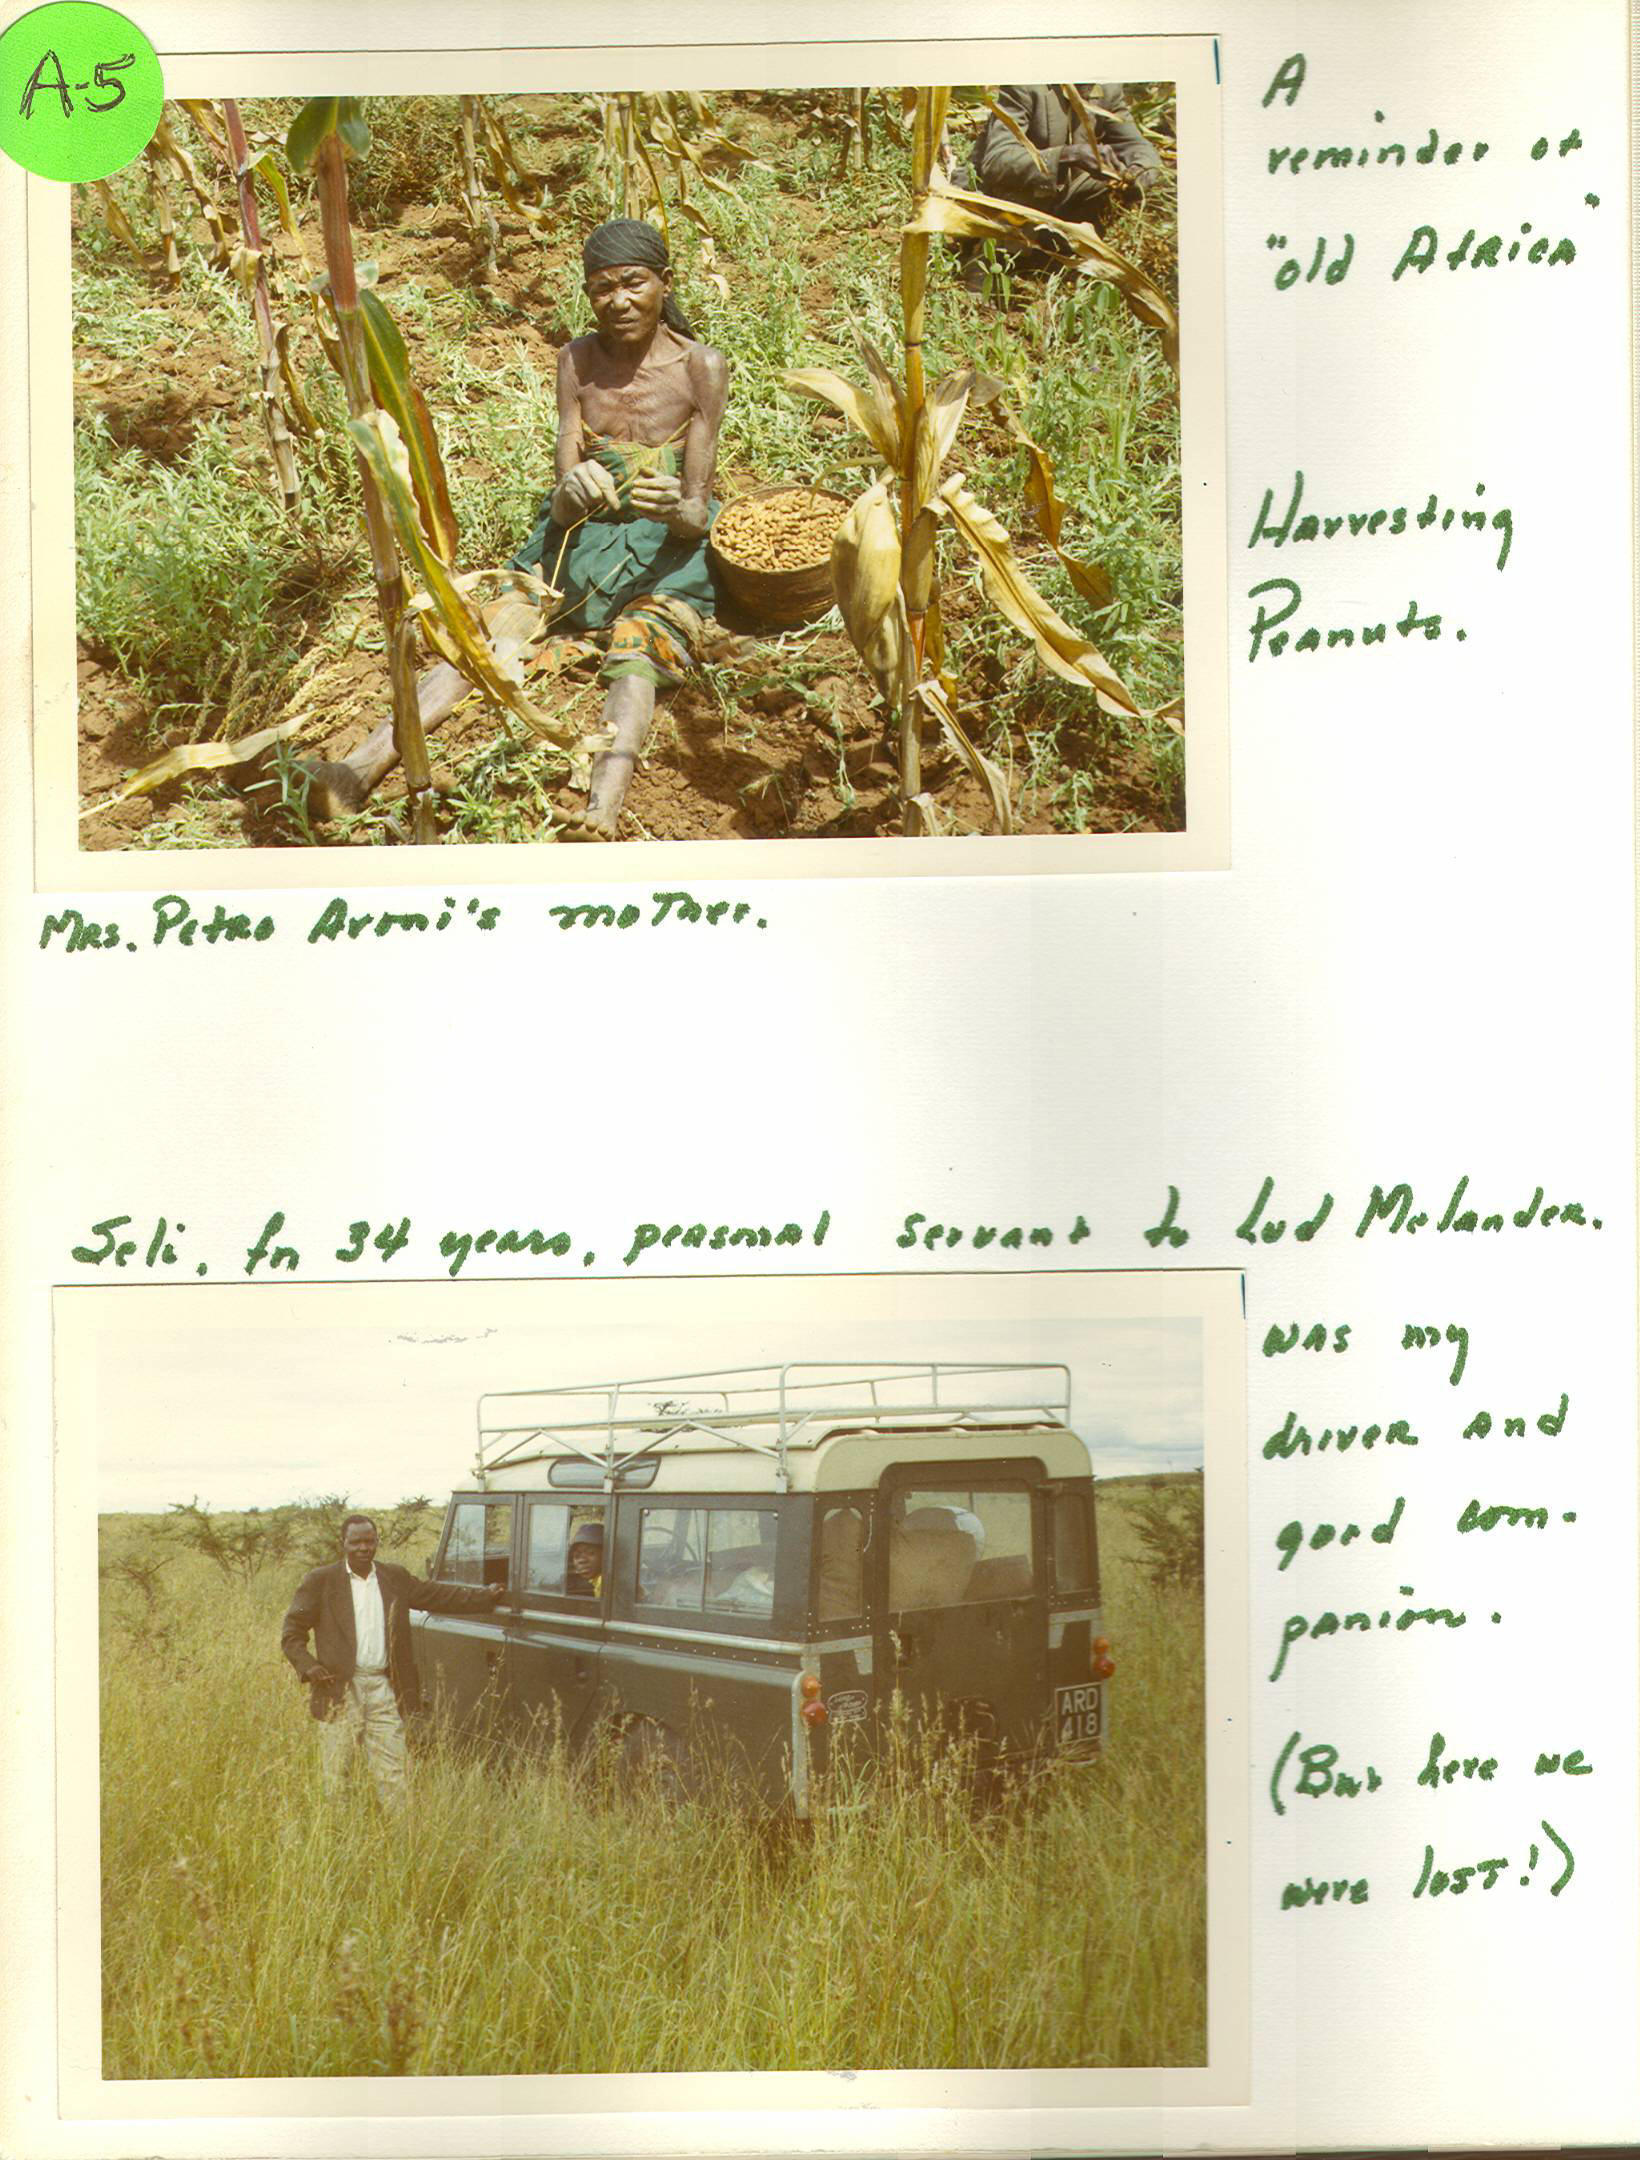 A-5
A
reminder of
"old Africa"
Harvesting
Peanuts.
Mrs. Petro Armi's mother.
Jeli, for 34 years, personal servant to Lud Melander.
was my
driver and
good com-
panion.
(But here we
were lost!)
ARD
418